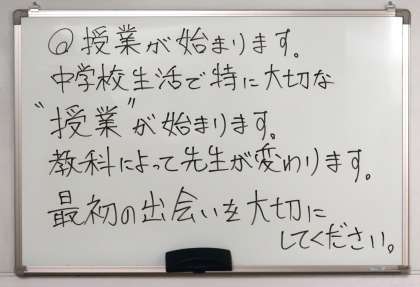 @授業が始まります。
中学校生活で特に大切な
"授業"が始まります。
教科によって先生が変わります。
最初の出会いを大切に
してください。